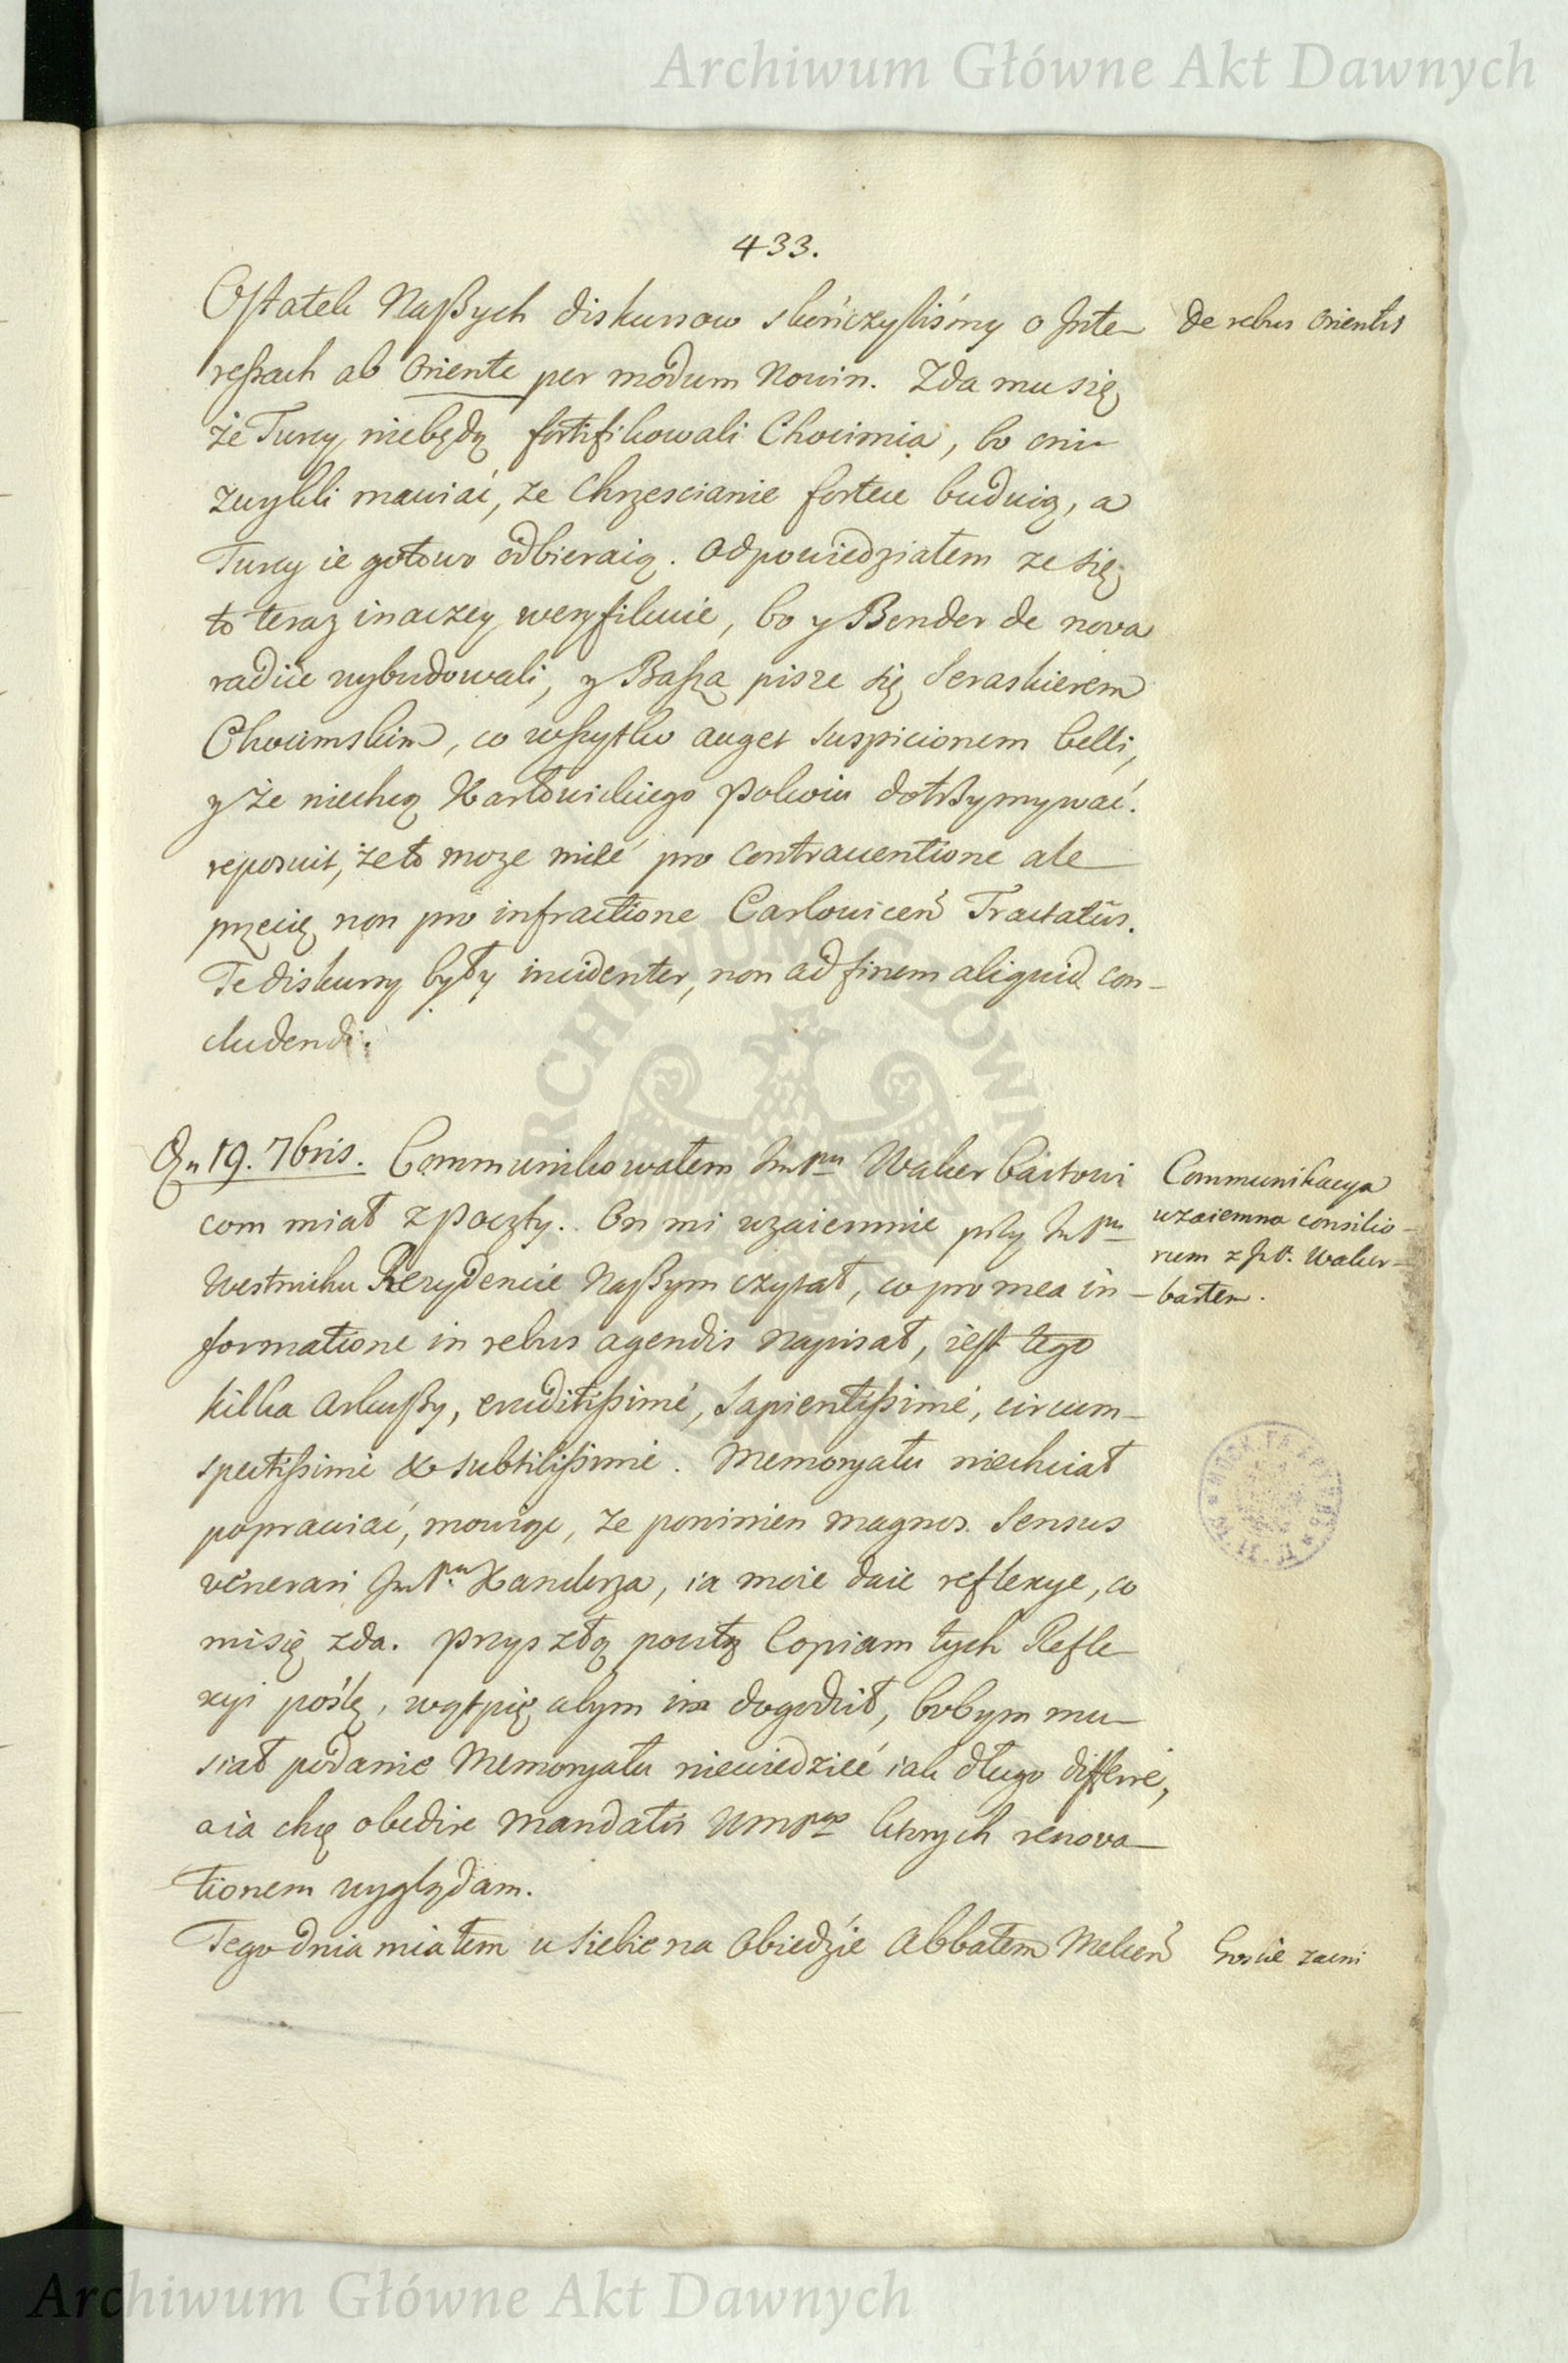 Archiwum Główne Akt Dawnych
433.
Ostatek Naszych diskursow skończyliśmy o Inte-
ressach ab Oriente per modum Nowin. Zda mu się
że Turcy niebędą fortifikowali Chocimia, bo oni
zwykli mawiać, ze Chrzescianie fortece buduią, a
Turcy ie gotowo odbieraią. Odpowiedziałem ze się
to teraz inaczey weryfikuie, bo y Bender de nova
radice wybudowali, y Basza pisze się Seraskierem
Chocimskim, co wszytko auget suspicionem belli,
y że niechcą Karłowickiego Pokoiu dotrzymywać.
reposuit, że to moze mieć pro contraventione ale
przecię non pro infractione Carlowiceń Tractatûs.
Te diskursy były incidenter, non ad finem aliquid con-
cludendi.
De rebus Orientis
Dn 19. 7bris. Communikowałem ImPu Wakerbartowi
com miał z Poczty. On mi wzaiemnie przy ImPu
Westniku Rezydencie Naszym czytał, co pro mea in-
formatione in rebus agendis napisał, iest tego
kilka arkuszy, eruditissimé, Sapientissimé, circum-
spectissimé & subtilissimé. Memoryału niechciał
poprawiać, mowiąc, ze powinien magnos Sensus
venerari ImPu Kanclerza, ia moie daie reflexye, co
mi się zda. Przyszłą pocztą Copiam tych Refle-
xyi poślę, wątpię abym im dogodził, bobym mu-
siał podanie Memoryału niewiedzieć iak długo differre,
a ia chcę obedire Mandatis WmPa ktorych renova-
tionem wyglądam.
Communikacya
wzaiemna consilio-
rum z JP. Waker-
bartem.
Tego dnia miałem u siebie na Obiedzie Abbatem Melceń
Goscie zacni
Archiwum Główne Akt Dawnych